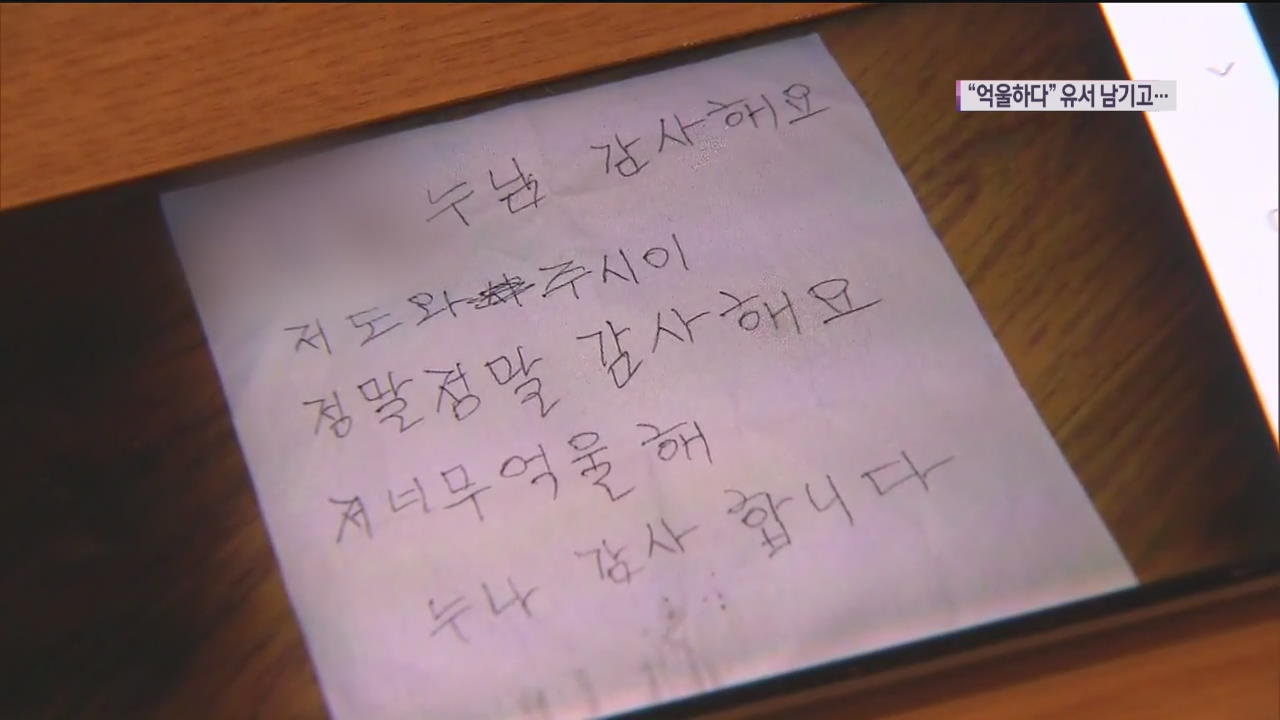 “억울하다” 유서 남기고…
누님 감사해요
저 도와 주시이
정말정말 감사해요
저너무억울해
누나 감사 합니다